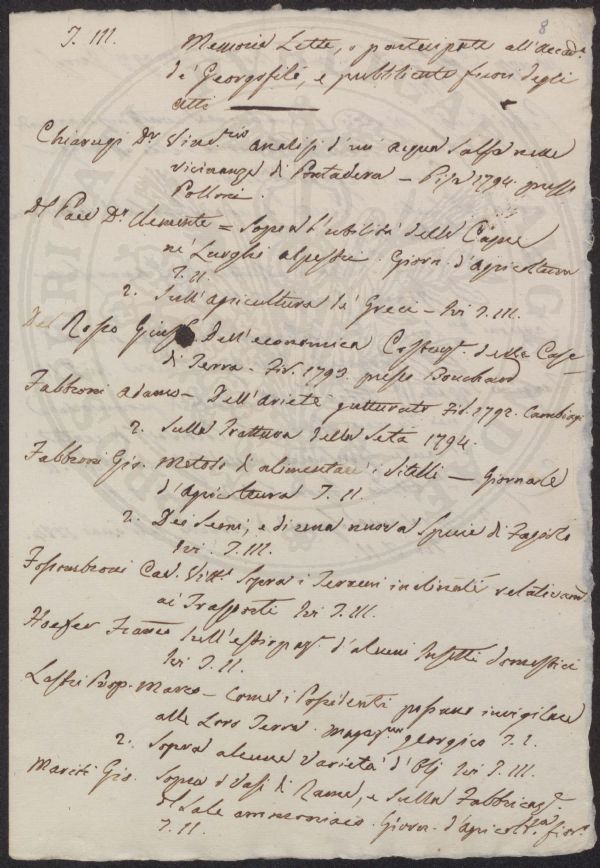 8
T. III.
Memorie Lette, o partecipate all'Accad.a
de' Georgofili, e pubblicate fuori degli
atti
Chiarugi Dr. Vinc.zio analisi d'un' acqua salsa nelle
vicinanze di Pontadera – Pisa 1794. presso
Polloni.
Del Pace Dr. Clemente = Sopra l'utilità delle Capre
ne' Luoghi alpestri. Giorn. d'Agricoltura
T. II.
2. Sull'agricultura de' Greci – Ivi T. III.
Del Rosso Gius. Dell'economica Costruz. delle Case
di Terra – Fir. 1793. presso Bouchard
Fabbroni Adamo – Dell'Ariete gutturato Fir. 1792. Cambiagi
2. Sulla Trattura della Seta 1794.
Fabbroni Gio. Metodo di alimentare i Vitelli — Giornale
d'agricoltura T. II.
2. Dei Semi, e di una nuova Specie di Fagiolo
Ivi. T. III.
Fossombroni Cav. Vitt.o Sopra i Terreni inclinati relativam.
ai Trasporti Ivi T. III.
Hoefer Franc.o sull'estirpaz. d'alcuni Insetti domestici
Ivi T. II.
Lastri Prop. Marco – Come i Possidenti possano invigilare
alle Loro Terre. Magaz. georgico T. I.
2. Sopra alcune varietà d'Olj Ivi T. III.
Mariti Gio. Sopra i Vasi di Rame, e sulla Fabbricaz.e
del Sale ammoniaco. Giorn. d'agricolt.ra fior.
T. II.